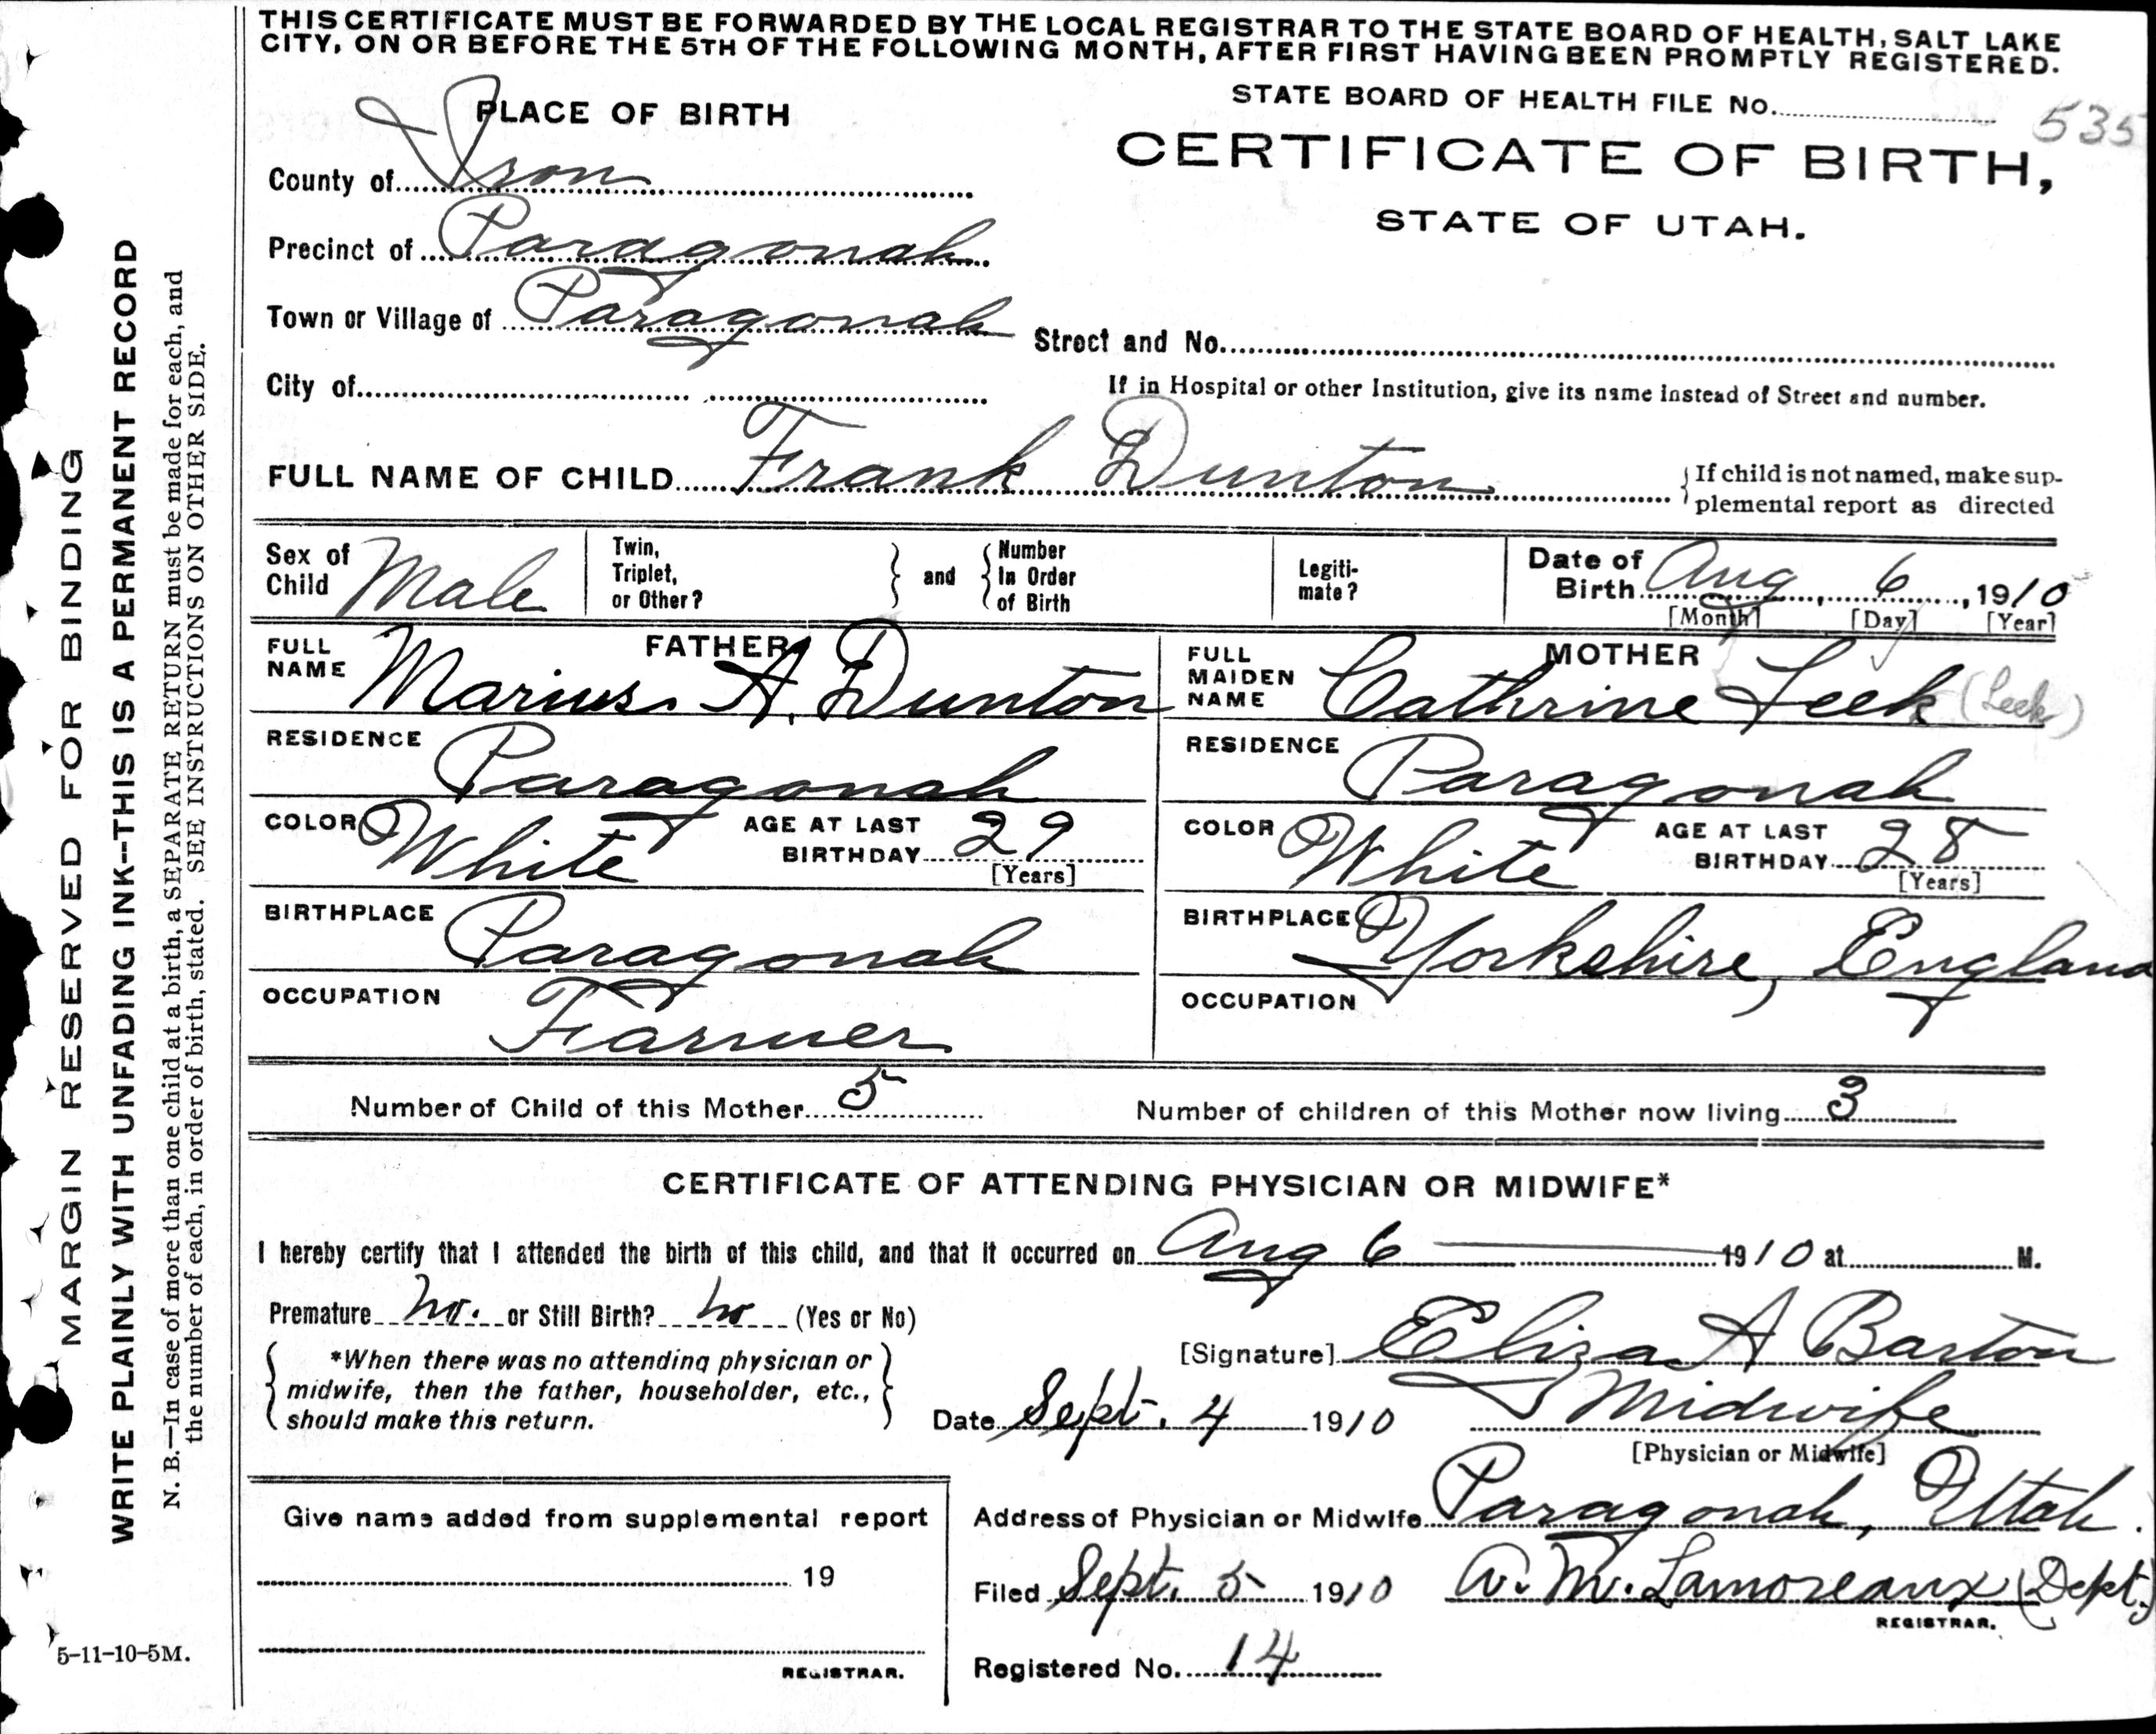 THIS CERTIFICATE MUST BE FORWARDED BY THE LOCAL REGISTRAR TO THE STATE BOARD OF HEALTH, SALT LAKE
CITY, ON OR BEFORE THE 5TH OF THE FOLLOWING MONTH, AFTER FIRST HAVING BEEN PROMPTLY REGISTERED.
PLACE OF BIRTH
STATE BOARD OF HEALTH FILE No. 535
CERTIFICATE OF BIRTH,
STATE OF UTAH.
County of Iron
Precinct of Paragonah
Town or Village of Paragonah
Street and No.
City of
If in Hospital or other Institution, give its name instead of Street and number.
FULL NAME OF CHILD Frank Dunton
If child is not named, make sup-
plemental report as directed
Sex of Child Male
Twin, Triplet, or Other?
and
Number In Order of Birth
Legiti-mate?
Date of Birth Aug 6, 1910
[Month] [Day] [Year]
FATHER
FULL NAME Marius A. Dunton
RESIDENCE Paragonah
COLOR White AGE AT LAST BIRTHDAY 29
[Years]
BIRTHPLACE Paragonah
OCCUPATION Farmer
MOTHER
FULL MAIDEN NAME Cathrine Leek (Leek)
RESIDENCE Paragonah
COLOR White AGE AT LAST BIRTHDAY 28
[Years]
BIRTHPLACE Yorkshire, England
OCCUPATION
Number of Child of this Mother 5
Number of children of this Mother now living 3
CERTIFICATE OF ATTENDING PHYSICIAN OR MIDWIFE*
I hereby certify that I attended the birth of this child, and that it occurred on Aug 6 1910 at M.
Premature no. or Still Birth? no (Yes or No)
*When there was no attending physician or
midwife, then the father, householder, etc.,
should make this return.
[Signature] Eliza A Barton
Date Sept. 4 1910
Midwife
[Physician or Midwife]
Give name added from supplemental report
19
REGISTRAR.
Address of Physician or Midwife Paragonah, Utah.
Filed Sept. 5 1910 A. M. Lamoreaux (Dept.)
REGISTRAR.
Registered No. 14
MARGIN RESERVED FOR BINDING
WRITE PLAINLY WITH UNFADING INK--THIS IS A PERMANENT RECORD
N. B.—In case of more than one child at a birth, a SEPARATE RETURN must be made for each, and
the number of each, in order of birth, stated. SEE INSTRUCTIONS ON OTHER SIDE.
5-11-10-5M.